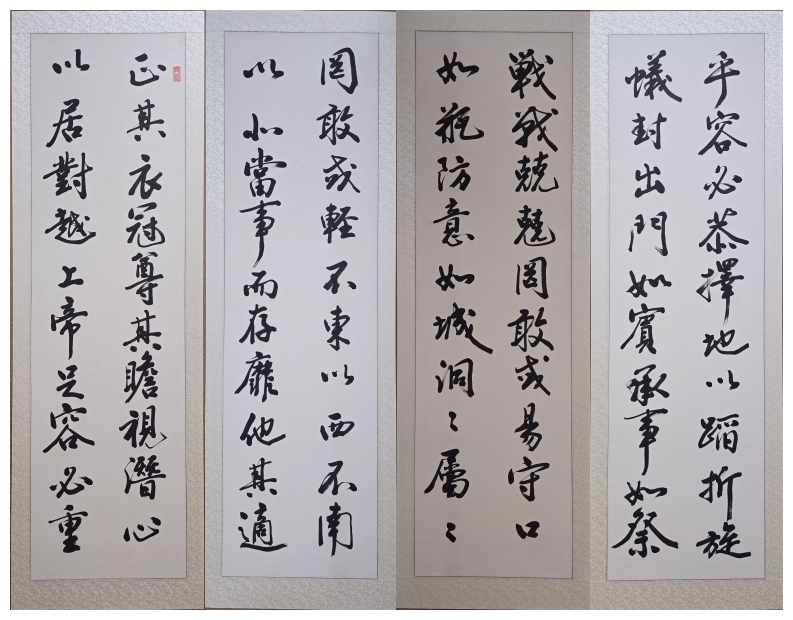 正其衣冠尊其瞻視潛心
以居對越上帝足容必重
手容必恭擇地以蹈折旋
蟻封出門如賓承事如祭
戦戦兢兢罔敢或易守口
如瓶防意如城洞々屬々
罔敢或軽不東以西不南
以北當事而存靡他其適